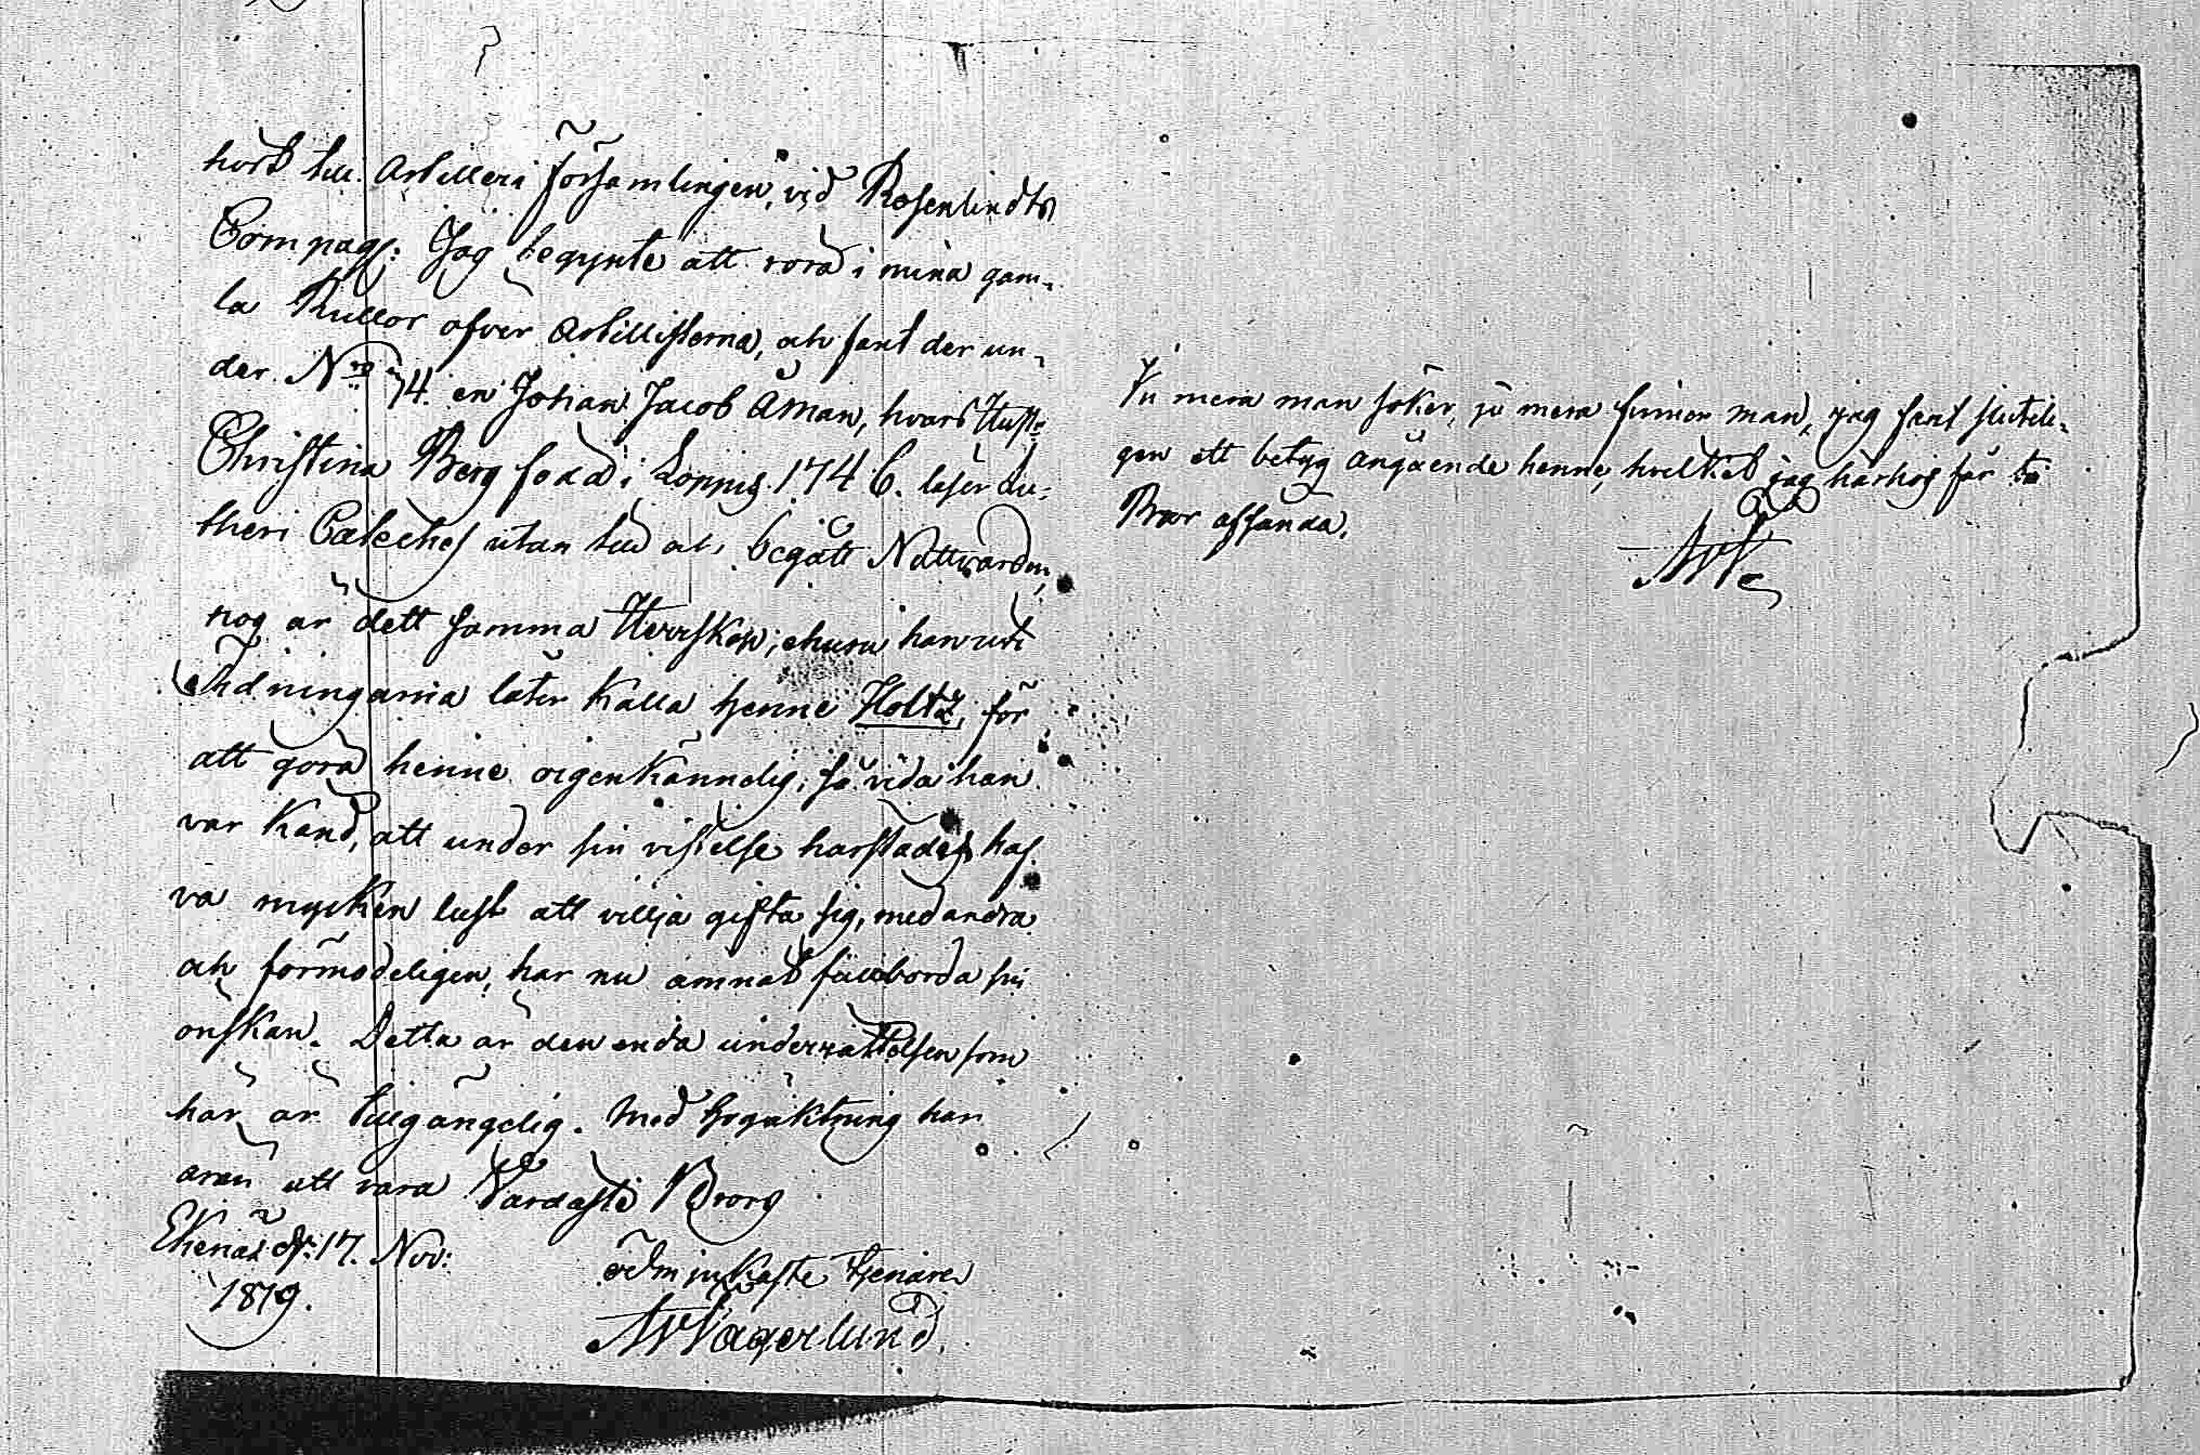 hört till Artilleri församlingen, vid Rosenlindts
Compag: Jag begynte att rora i mina gam-
la Rullor öfver Artillisterna, och fant der un-
der N:ro 74. en Johan Jacob Åman, hvars Hust:
Christina Berg född i Loppis 1746. läser Lu-
theri Cateches utan till och begått Nattvarden,
nog är dett samma Herrskap; ehuru han uti
Tidningarna låter kalla henne Holtz, för
att göra henne oigenkännelig; så vida han
var känd, att under sin vistelse härstädes haf-
va mycken lust att villja gifta sig, med andra
och förmodeligen, har nu ämnat fullborda sin
önskan. Detta är den enda underrättelsen som
här är tillgängelig. Med högaktning har
äran att vara Värdaste Brors
Ekenäs d: 17. Nov:
1819.
ödmjukaste tjenare
Wagerlund.
Ju mera man söker, ju mera finner man, jag fant slutili-
gen ett betyg angående henne, hvilket jag härhos får
Bror afsända.